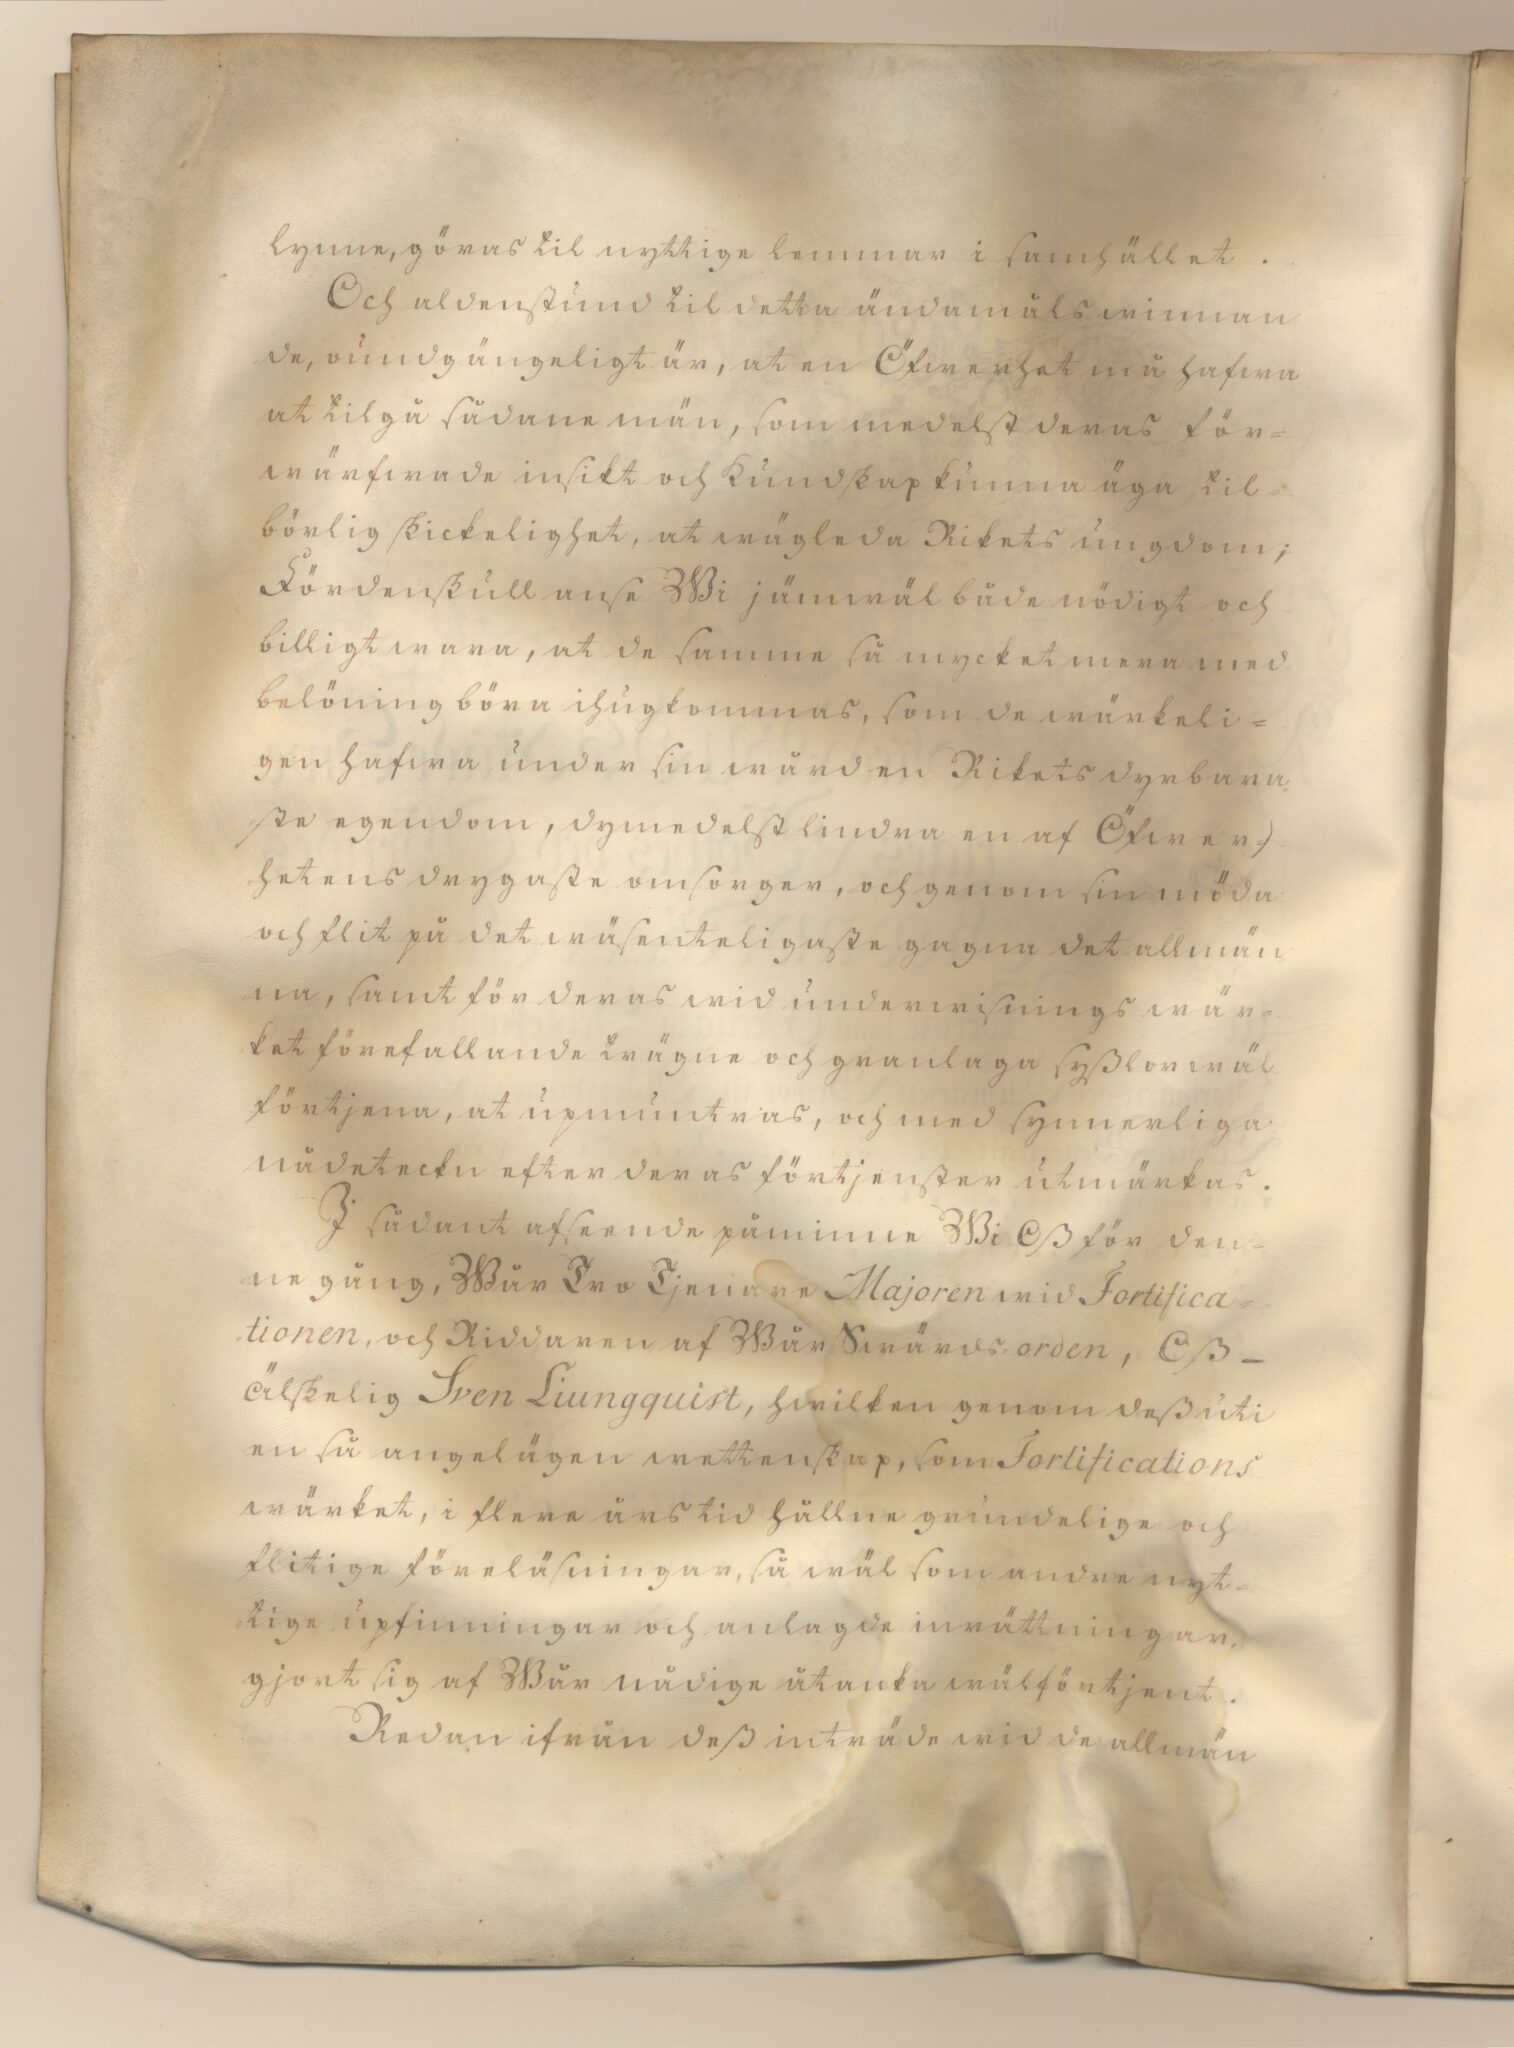 lynne, göras til nyttige lemmar i samhället.
Och aldenstund til detta ändamåls winnan
de, oundgängeligt är, at en Öfwerhet må hafwa
at tilgå sådane män, som medelst deras för=
wärfwade insikt och Kundskap kunna äga til=
börlig skickelighet, at wägleda Rikets ungdom;
Fördenskull anse Wi jämwäl både nödigt och
billigt wara, at de samme så mycket mera med
belöning böra ihugkommas, som de wärkeli=
gen hafwa under sin wård en Rikets dyrbara
ste egendom, dymedelst lindra en af Öfwer=
hetens drygaste omsorger, och genom sin möda
och flit på det wäsenteligaste gagna det allmän
na, samt för deras wid underwisnings wär=
ket förefallande trägne och granlaga syßlor wäl
förtjena, at upmuntras, och med synnerliga
nådeteckn efter deras förtjenster utmärkas.
I sådant afseende påminne Wi Oß för den=
ne gång, Wår Tro Tjenare Majoren wid Fortifica=
tionen, och Riddaren af Wår Swärds orden, Oß
älskelig Sven Liungquist, hwilken genom deß uti
en så angelägen wettenskap, som Fortifications
wärket, i flere års tid hållne grundelige och
flitige föreläsningar, så wäl som andre nyt=
tige upfinningar och anlagde inrättningar,
gjort sig af Wår nådige åtanka wälförtjent.
Redan ifrån deß inträde wid de allmän